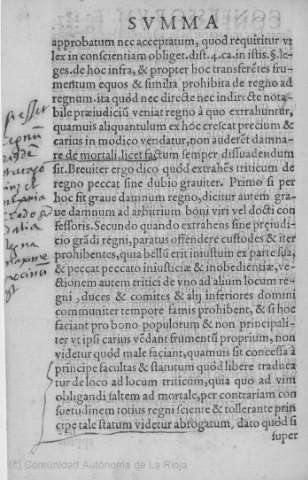 SVMMA
approbatum nec acceptatum, quod requiritur vt
lex in conscientiam obliget. dist. 4. ca. in istis. §. le-
ges. de hoc infra, & propter hoc transferẽtes fru-
mentum equos & similia prohibita de regno ad
regnum. ita quód nec directe nec indirecte nota-
bile præiudiciũ veniat regno à quo extrahuntur,
quamuis aliquantulum ex hoc crescat precium &
carius in modico vendatur, non auderẽ damna-
re de mortali. licet factum semper dissuadendum
sit. Breuiter ergo dico quód extrahẽs triticum de
regno peccat sine dubio grauiter. Primo si per
hoc sit graue damnum regno, dicitur autem gra-
ue damnum ad arbitrium boni viri vel docti con
fessoris. Secundo quando extrahens sine præjudi-
cio grãdi regni, paratus offendere custodes & iter
prohibentes, quia bellũ erit iniustuim ex parte sua,
& peccat peccato iniusticiæ & inobedientiæ, ve-
ctionem autem tritici de vno ad alium locum re-
gni, duces & comites & alij inferiores domini
communiter tempore famis prohibent, & si hoc
faciant pro bono populorum & non principali-
ter vt ipsi carius vẽdant frumentũ proprium, non
videtur quód male faciant, quamuis sit concessa à
principe facultas & statutum quód libere traduca
tur de loco ad locum triticum, quia quo ad vim
obligandi saltem ad mortale, per contrariam con
suetudinem totius regni sciente & tollerante prin
cipe tale statum videtur abrogatum, dato quód si
super
(c) Comunidad Autónoma de La Rioja